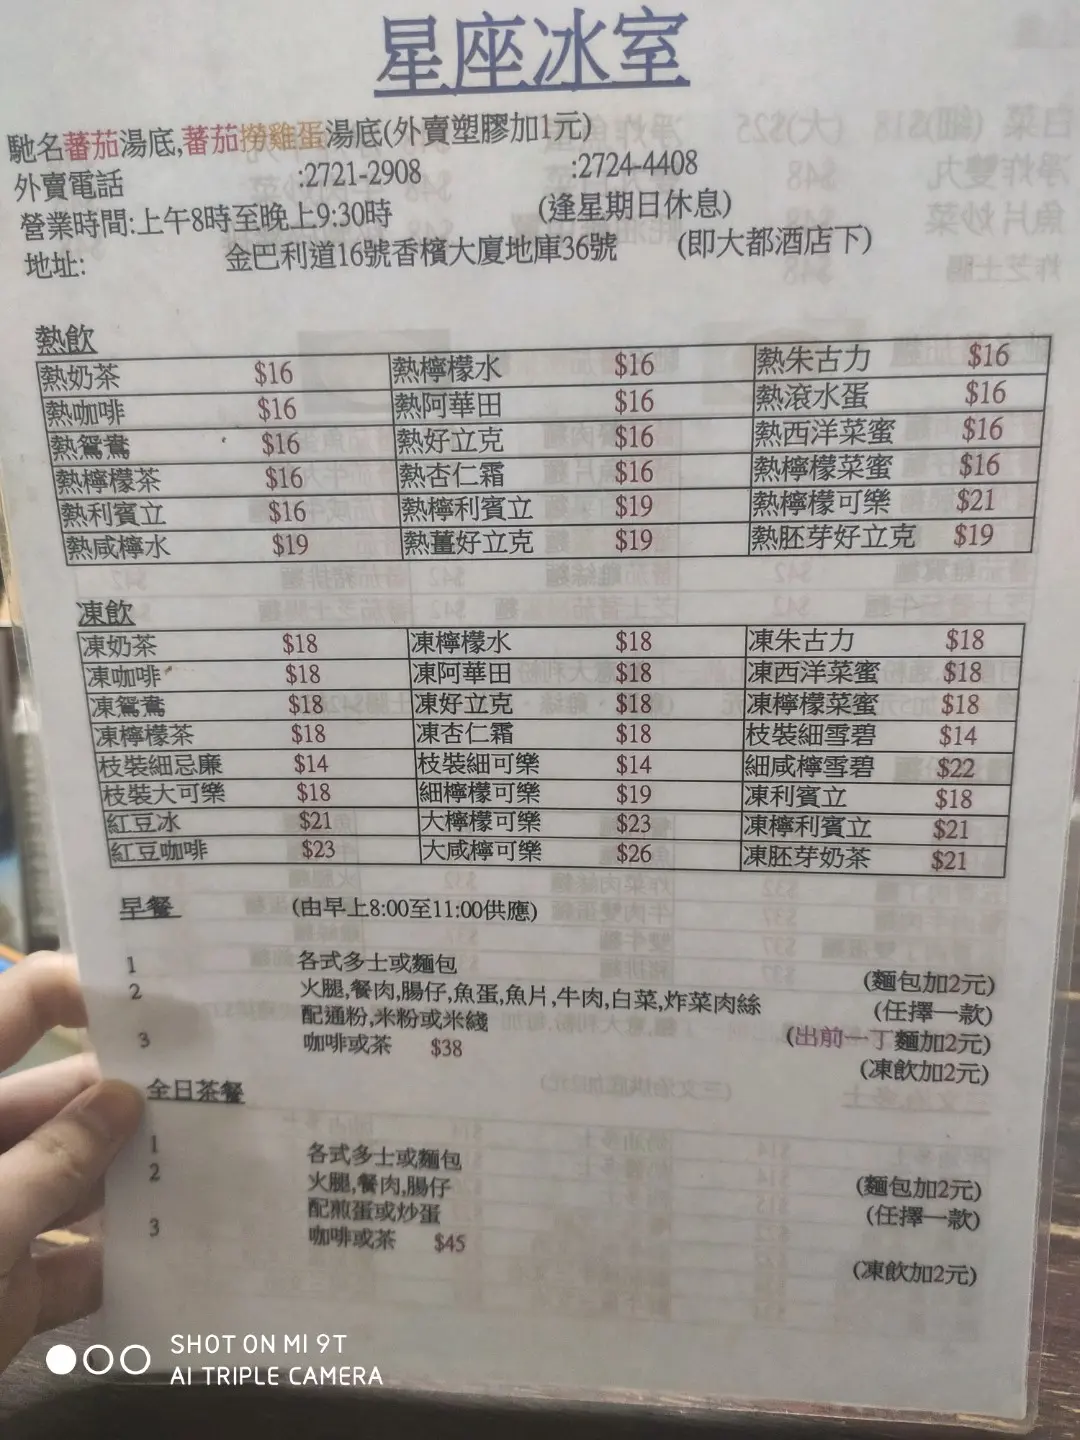 星座冰室
馳名蕃茄湯底,蕃茄撈雞蛋湯底(外賣塑膠加1元)
外賣電話 :2721-2908 :2724-4408
營業時間:上午8時至晚上9:30時 (逢星期日休息)
地址: 金巴利道16號香檳大廈地庫36號 (即大都酒店下)
熱飲
熱奶茶 $16 熱檸檬水 $16 熱朱古力 $16
熱咖啡 $16 熱阿華田 $16 熱滾水蛋 $16
熱鴛鴦 $16 熱好立克 $16 熱西洋菜蜜 $16
熱檸檬茶 $16 熱杏仁霜 $16 熱檸檬菜蜜 $16
熱利賓立 $16 熱檸利賓立 $19 熱檸檬可樂 $21
熱咸檸水 $19 熱薑好立克 $19 熱胚芽好立克 $19
凍飲
凍奶茶 $18 凍檸檬水 $18 凍朱古力 $18
凍咖啡 $18 凍阿華田 $18 凍西洋菜蜜 $18
凍鴛鴦 $18 凍好立克 $18 凍檸檬菜蜜 $18
凍檸檬茶 $18 凍杏仁霜 $18 枝裝細雪碧 $14
枝裝細忌廉 $14 枝裝細可樂 $14 細咸檸雪碧 $22
枝裝大可樂 $18 細檸檬可樂 $19 凍利賓立 $18
紅豆冰 $21 大檸檬可樂 $23 凍檸利賓立 $21
紅豆咖啡 $23 大咸檸可樂 $26 凍胚芽奶茶 $21
早餐 (由早上8:00至11:00供應)
1 各式多士或麵包 (麵包加2元)
2 火腿,餐肉,腸仔,魚蛋,魚片,牛肉,白菜,炸菜肉絲 (任擇一款)
配通粉,米粉或米綫 (出前一丁麵加2元)
3 咖啡或茶 $38 (凍飲加2元)
全日茶餐
1 各式多士或麵包 (麵包加2元)
2 火腿,餐肉,腸仔 (任擇一款)
配煎蛋或炒蛋
3 咖啡或茶 $45 (凍飲加2元)
SHOT ON MI 9T
AI TRIPLE CAMERA